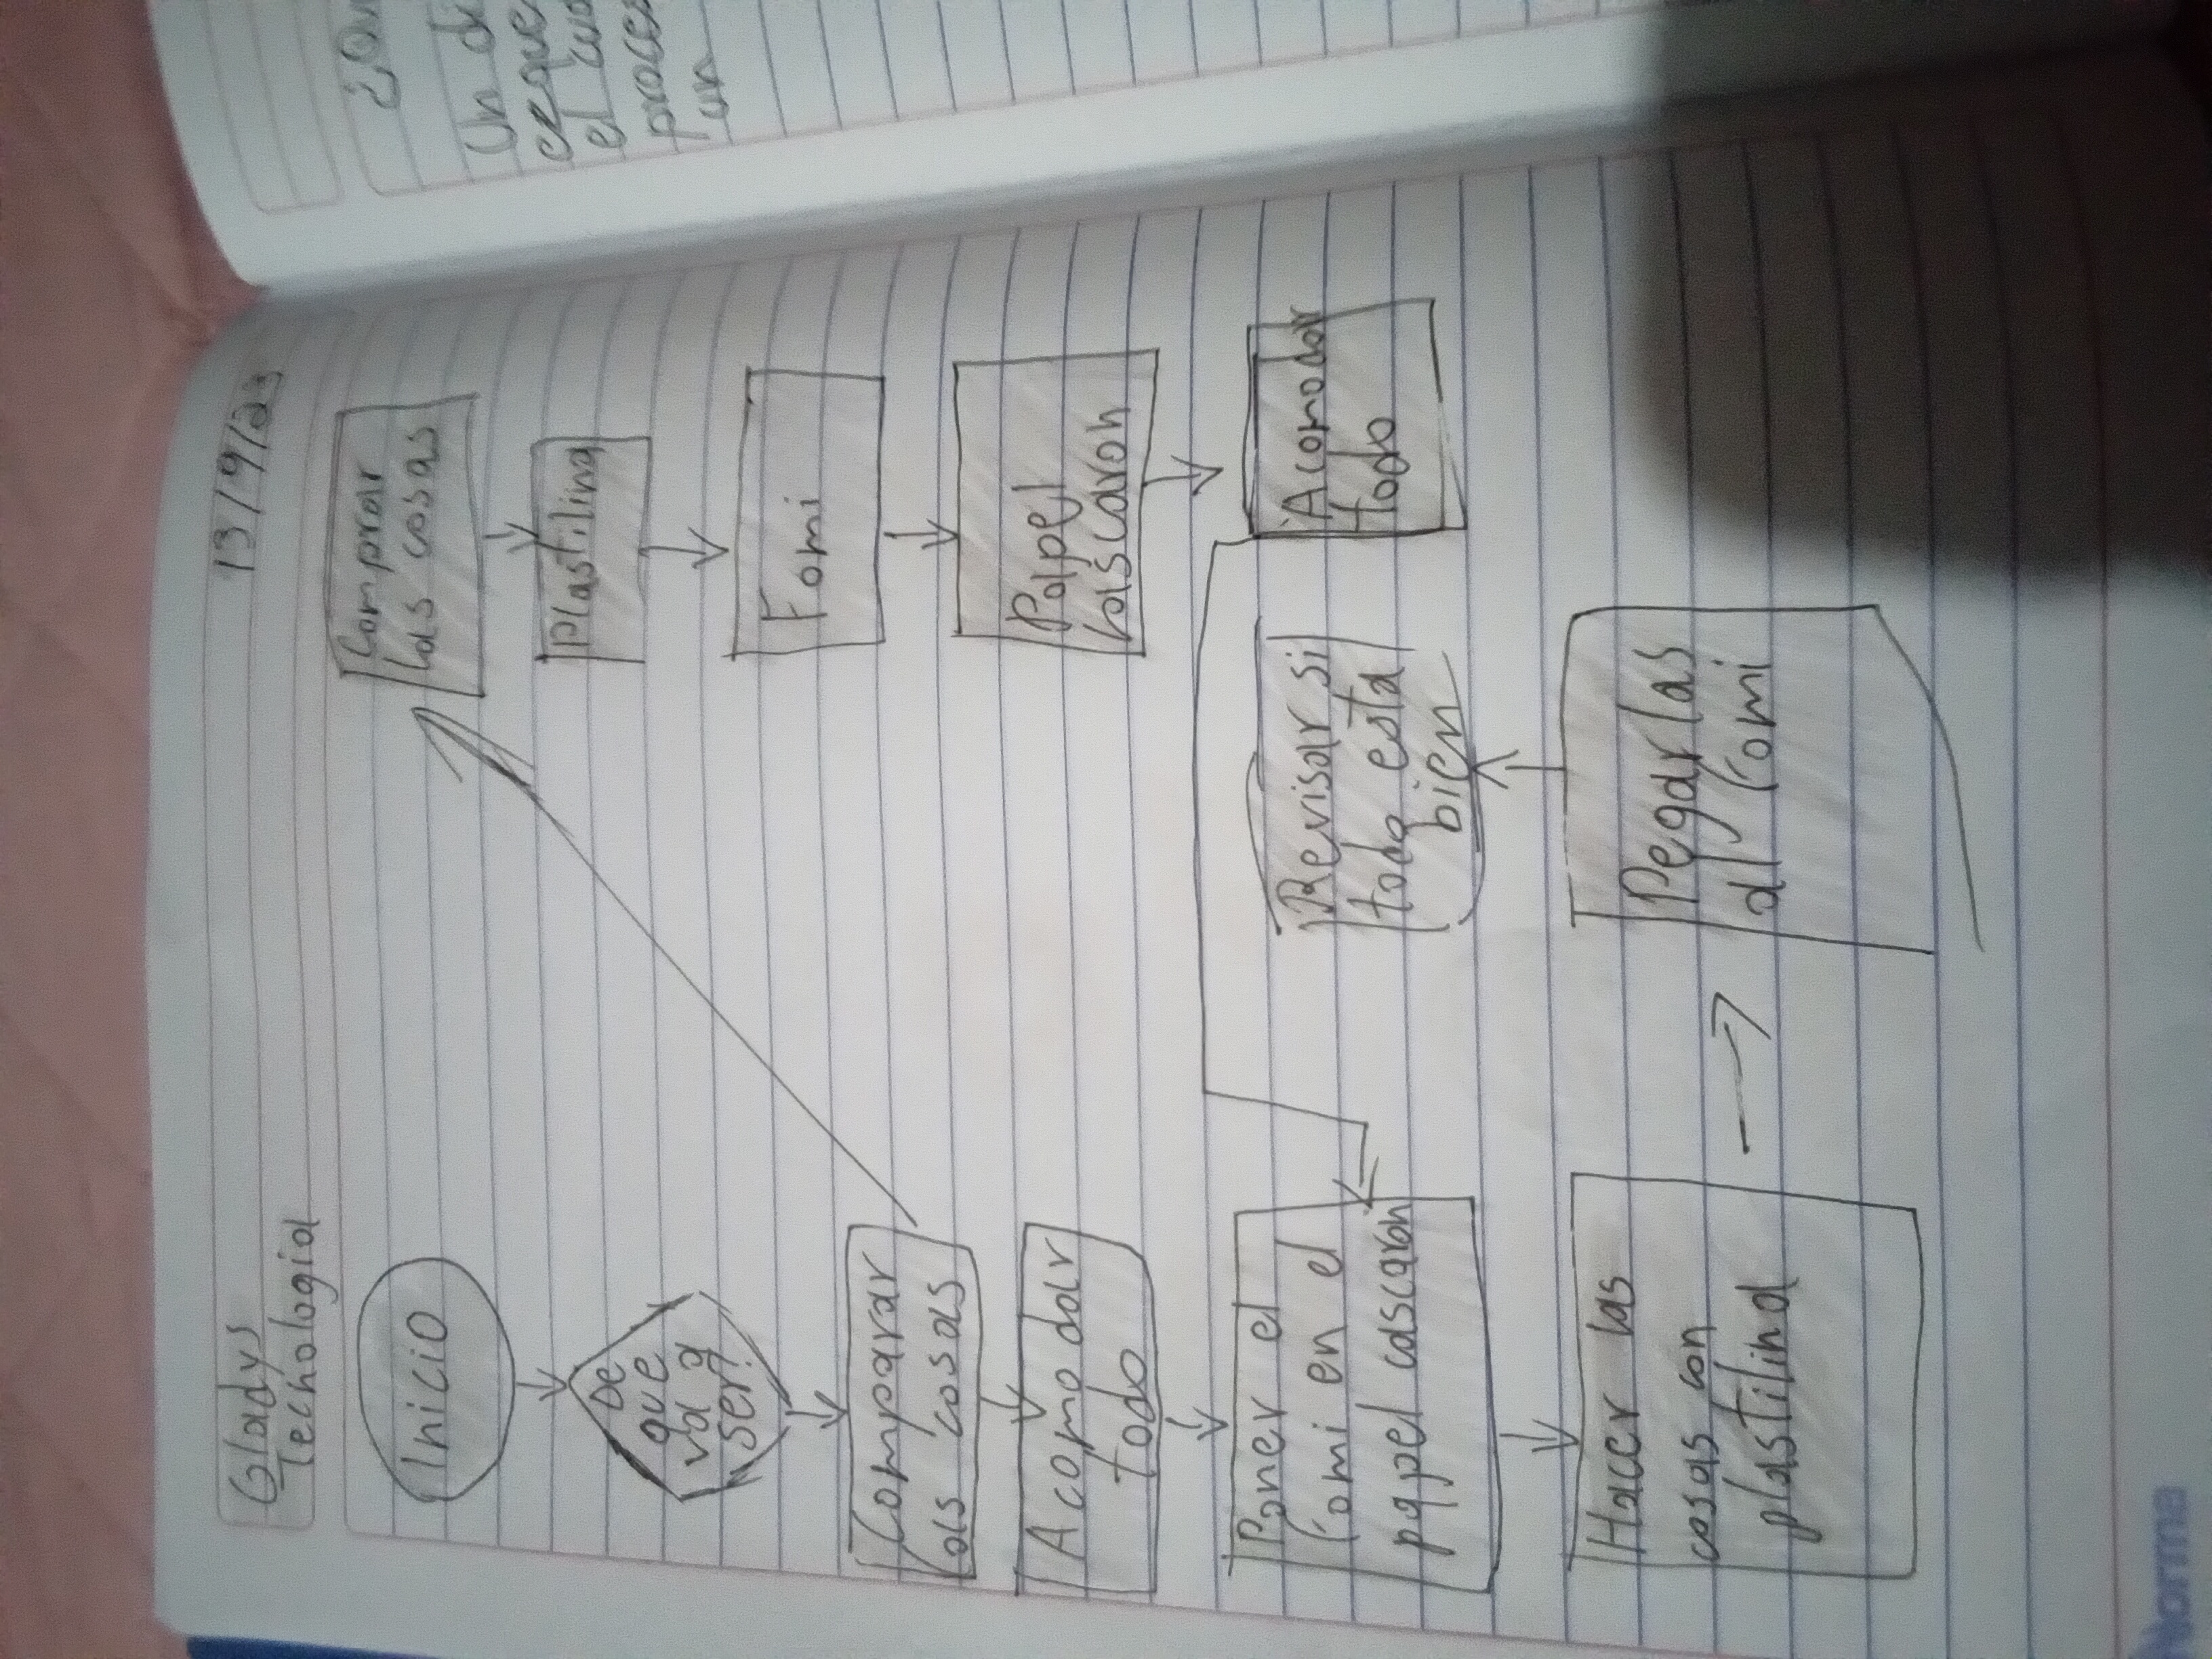 Gladys
Techologia
13/9/23
Inicio
De
que
va a
ser?
Comparar
las cosas
Acomodar
todo
Poner el
fomi en el
papel cascaron
Hacer las
cosas con
plastilina
Comprar
las cosas
Plastilina
Fomi
Palpel
cascaron
Acomodar
todo
Revisar si
todo esta
bien
Pegar las
al fomi
Un di
el cua
proces
un
Norma